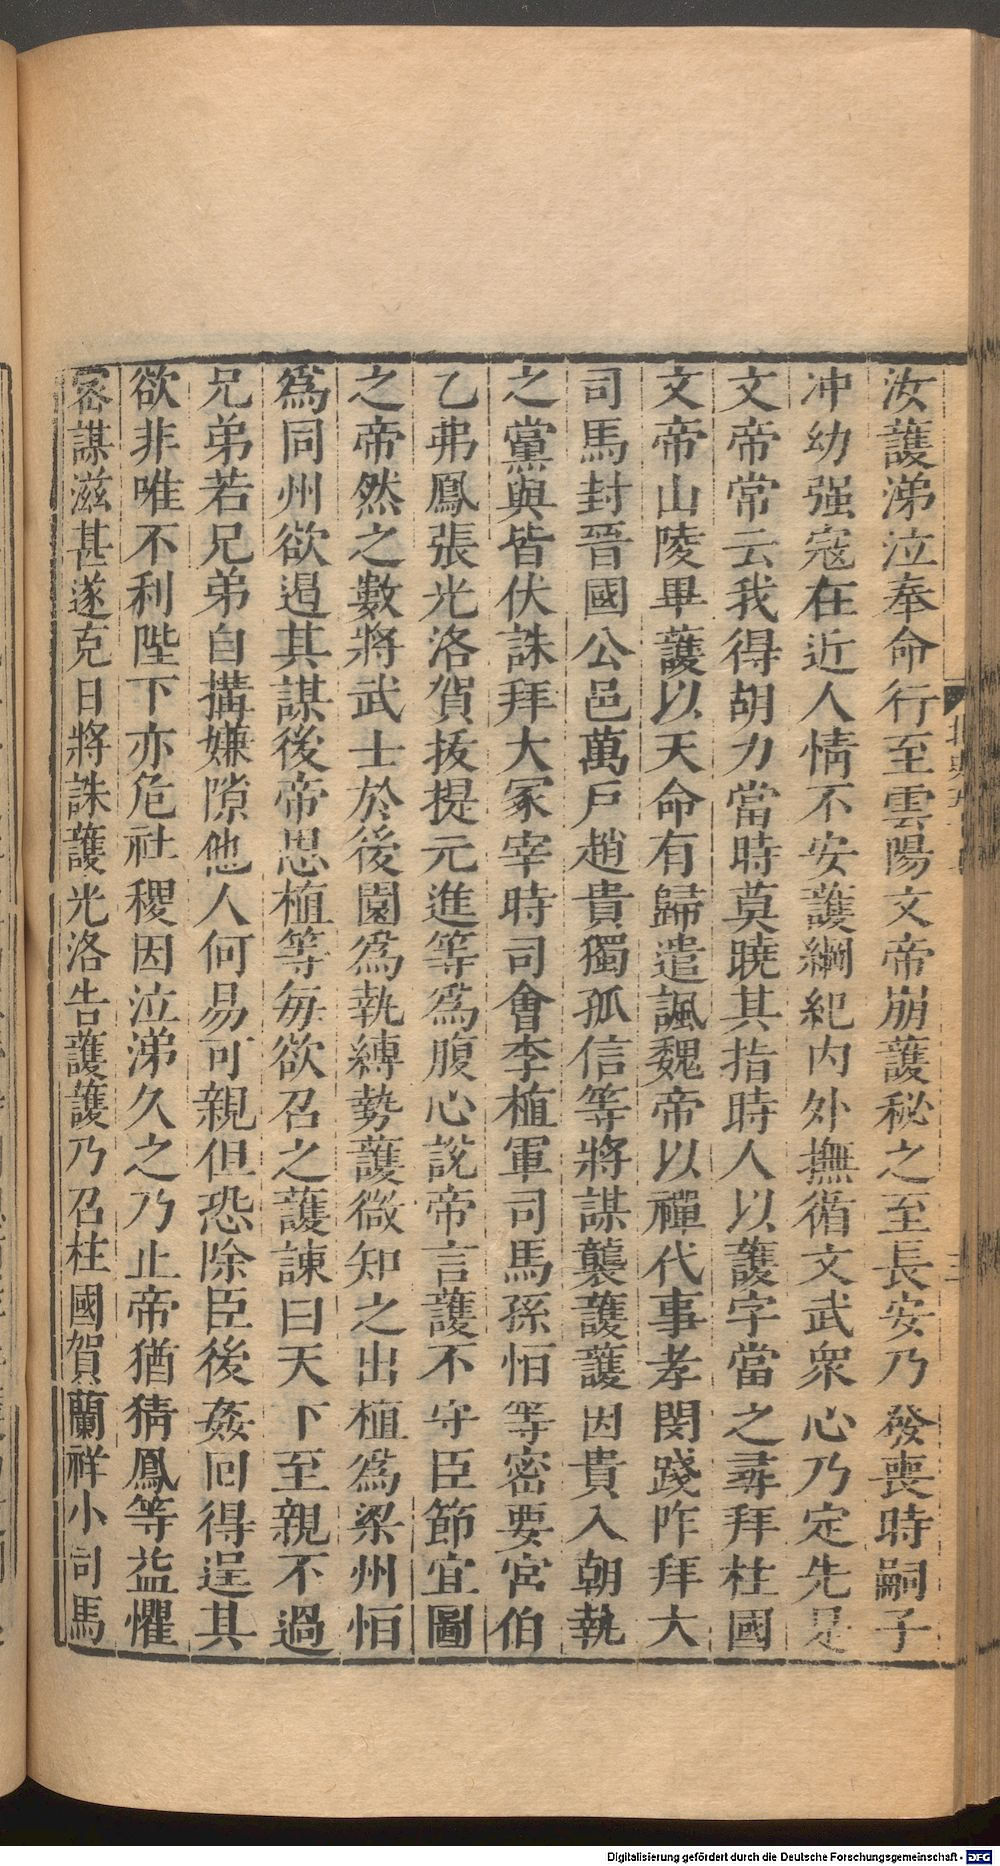 汝護涕泣奉命行至雲陽文帝崩護秘之至長安乃發喪時嗣子
冲幼强寇在近人情不安護綱紀内外撫循文武衆心乃定先是
文帝常云我得胡力當時莫曉其指時人以護字當之尋拜柱國
文帝山陵畢護以天命有歸遣諷魏帝以禪代事孝閔踐阼拜大
司馬封晉國公邑萬戶趙貴獨孤信等將謀襲護護因貴入朝執
之黨與皆伏誅拜大冢宰時司會李植軍司馬孫恒等密要宮伯
乙弗鳳張光洛賀拔提元進等爲腹心說帝言護不守臣節宜圖
之帝然之數將武士於後園爲執縛勢護微知之出植爲梁州恒
爲同州欲遏其謀後帝思植等每欲召之護諫曰天下至親不過
兄弟若兄弟自搆嫌隙他人何易可親但恐除臣後姦回得逞其
欲非唯不利陛下亦危社稷因泣涕久之乃止帝猶猜鳳等益懼
密謀滋甚遂克日將誅護光洛告護護乃召柱國賀蘭祥小司馬
Digitalisierung gefördert durch die Deutsche Forschungsgemeinschaft - DFG